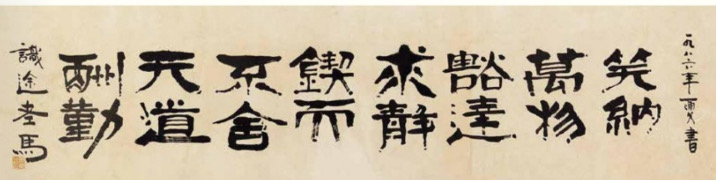 一九八六年夏書
笑納
萬物
豁達
求靜
鍥而
不舍
天道
酬勤
識途老馬